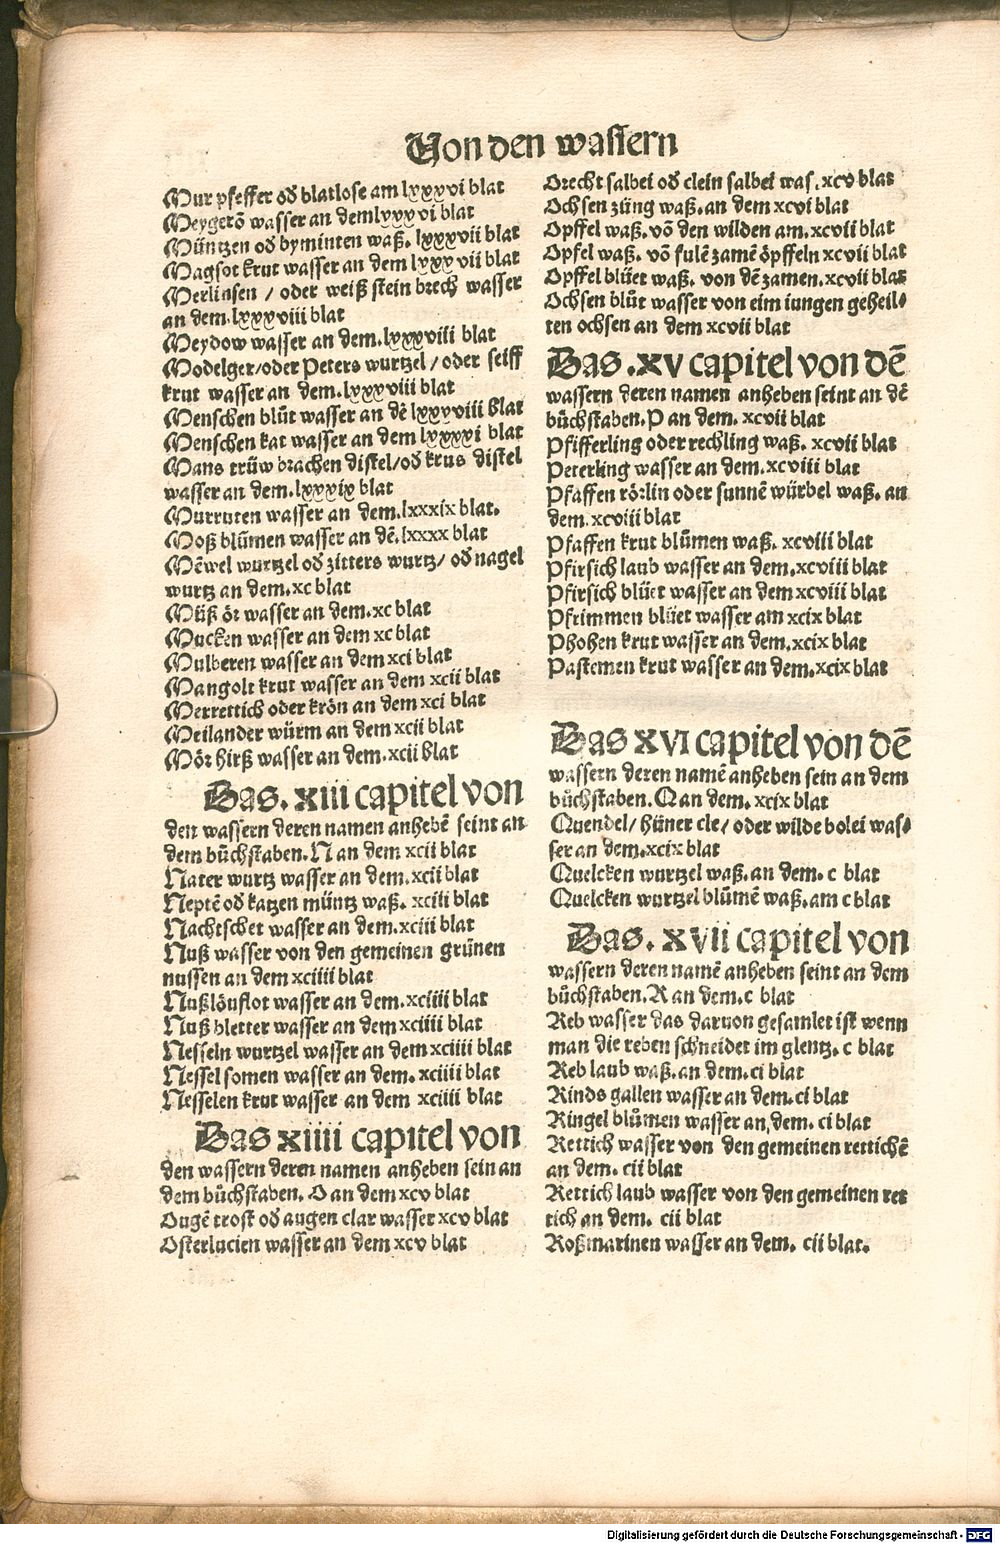 Von den wassern
Mur pfeffer od blatlose am lxxxvi blat
Meygerō wasser an dem lxxxvi blat
Müntzen od byminten waß. lxxxvii blat
Magsot krut wasser an dem lxxxvii blat
Merlinsen / oder weiß stein brech wasser
an dem. lxxxviii blat
Meydow wasser an dem. lxxxviii blat
Modelger/oder Peters wurtzel / oder seiff
krut wasser an dem. lxxxviii blat
Menschen blůt wasser an dē lxxxviii blat
Menschen kat wasser an dem lxxxxi blat
Mans trüw brachen distel/od krus distel
wasser an dem. lxxxix blat
Murruten wasser an dem. lxxxix blat.
Moß blůmen wasser an dē. lxxxx blat
Mēwel wurtzel od zitters wurtz/ od nagel
wurtz an dem. xc blat
Müß ör wasser an dem. xc blat
Mucken wasser an dem xc blat
Mulberen wasser an dem xci blat
Mangolt krut wasser an dem xcii blat
Merrettich oder krön an dem xci blat
Meilander würm an dem xcii blat
Mör hirß wasser an dem. xcii blat
Das. xiii capitel von
den wassern deren namen anhebē seint an
dem bůchstaben. N an dem xcii blat
Nater wurtz wasser an dem. xcii blat
Neptē od katzen müntz waß. xciii blat
Nachtschet wasser an dem. xciii blat
Nuß wasser von den gemeinen grünen
nussen an dem xciiii blat
Nußlöuflot wasser an dem. xciiii blat
Nuß bletter wasser an dem xciiii blat
Nesseln wurtzel wasser an dem xciiii blat
Nessel somen wasser an dem. xciiii blat
Nesselen krut wasser an dem xciiii blat
Das xiiii capitel von
den wassern deren namen anheben sein an
dem bůchstaben. O an dem xcv blat
Ougē trost od augen clar wasser xcv blat
Osterlucien wasser an dem xcv blat
Orecht salbei od clein salbei was. xcv blat
Ochsen züng waß. an dem xcvi blat
Opffel waß. vō den wilden am. xcvii blat
Opfel waß. vō fulē zamē öpffeln xcvii blat
Opffel blüet waß. von dē zamen. xcvii blat
Ochsen blůt wasser von eim iungen geheil⸗
ten ochsen an dem xcvii blat
Das .xv capitel von dē
wassern deren namen anheben seint an dē
bůchstaben. P an dem. xcvii blat
Pfifferling oder rechling waß. xcvii blat
Peterling wasser an dem. xcviii blat
Pfaffen rörlin oder sunnē würbel waß. an
dem. xcviii blat
Pfaffen krut blůmen waß. xcviii blat
Pfirsich laub wasser an dem. xcviii blat
Pfirsich blüet wasser an dem xcviii blat
Pfrimmen blüet wasser am xcix blat
Phohen krut wasser an dem. xcix blat
Pastemen krut wasser an dem. xcix blat
Das xvi capitel von dē
wassern deren namē anheben sein an dem
bůchstaben. Q an dem. xcix blat
Quendel/ hüner cle/ oder wilde bolei was⸗
ser an dem. xcix blat
Quelcken wurtzel waß. an dem. c blat
Quelcken wurtzel blůmē waß. am c blat
Das. xvii capitel von
wassern deren namē anheben seint an dem
bůchstaben. R an dem. c blat
Reb wasser das daruon gesamlet ist wenn
man die reben schneidet im glentz. c blat
Reb laub waß. an dem. ci blat
Rinds gallen wasser an dem. ci blat
Ringel blůmen wasser an, dem. ci blat
Rettich wasser von den gemeinen rettichē
an dem. cii blat
Rettich laub wasser von den gemeinen ret
tich an dem. cii blat
Roßmarinen wasser an dem. cii blat.
Digitalisierung gefördert durch die Deutsche Forschungsgemeinschaft - DFG